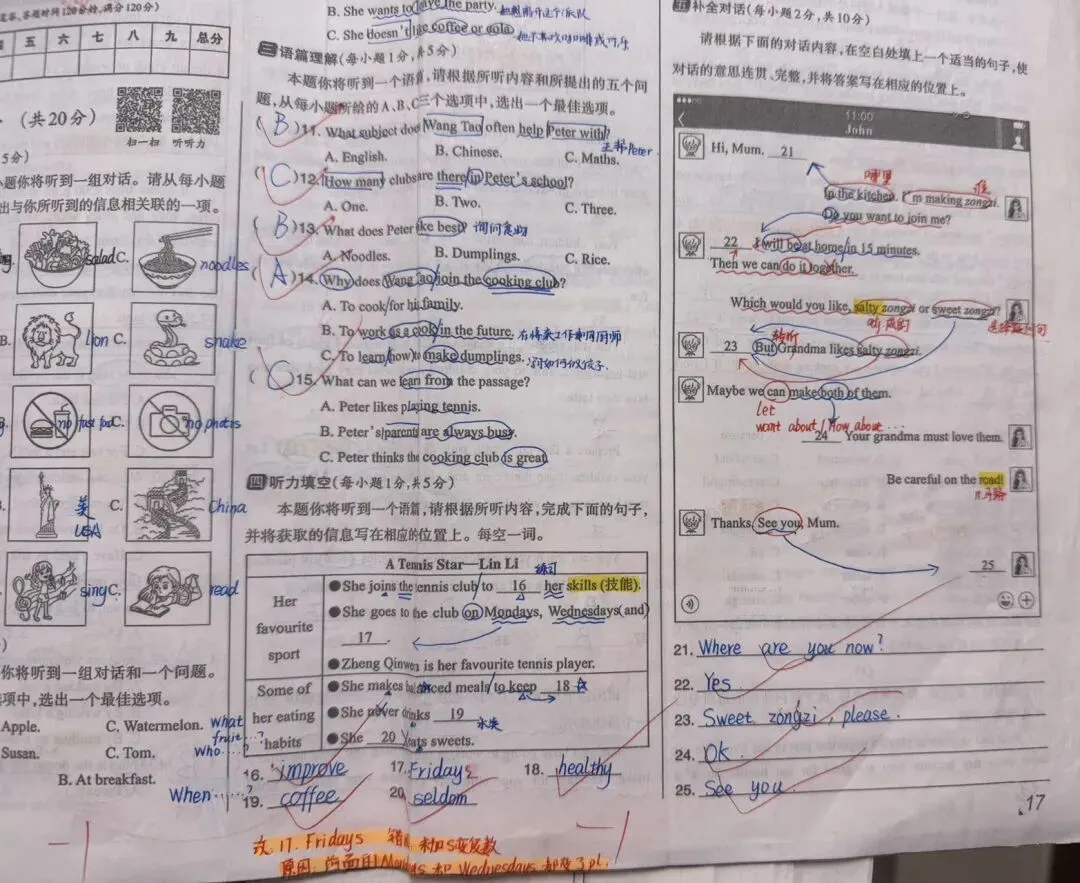 答时间120分钟,满分120分)
五 六 七 八 九 总分
(共20分)
扫一扫 听听力
5分)
小题你将听到一组对话。请从每小题
出与你所听到的信息相关联的一项。
salad C. noodles
B. lion C. snake
no fast food C. no photos
美
USA C. China
sing C. read
你将听到一组对话和一个问题。
选项中,选出一个最佳选项。
Apple. C. Watermelon. what fruit…?
Susan. C. Tom. Who……?
B. At breakfast.
When……?
B. She wants to leave the party.
C. She doesn't like coffee or cola.
三 语篇理解(每小题1分,共5分)
本题你将听到一个语篇,请根据所听内容和所提出的五个问
题,从每小题所给的A、B、C三个选项中,选出一个最佳选项。
( B )11. What subject does Wang Tao often help Peter with?
王帮Peter.
A. English. B. Chinese. C. Maths.
( C )12. How many clubs are there in Peter's school?
A. One. B. Two. C. Three.
( B )13. What does Peter like best? 询问食物
A. Noodles. B. Dumplings. C. Rice.
( A )14. Why does Wang Tao join the cooking club?
A. To cook for his family.
B. To work as a cook in the future. 在将来工作申用厨师
C. To learn how to make dumplings.
( C )15. What can we learn from the passage?
A. Peter likes playing tennis.
B. Peter's parents are always busy.
C. Peter thinks the cooking club is great.
四 听力填空(每小题1分,共5分)
本题你将听到一个语篇,请根据所听内容,完成下面的句子,
并将获取的信息写在相应的位置上。每空一词。
A Tennis Star—Lin Li
练习
Her favourite sport
●She joins the tennis club to 16 her skills (技能).
●She goes to the club on Mondays, Wednesdays and
17 .
●Zheng Qinwen is her favourite tennis player.
Some of her eating habits
●She makes balanced meals to keep 18 .
●She never drinks 19 .
●She 20 eats sweets.
16. improve 17. Fridays 18. healthy
19. coffee 20. seldom
改. 17. Fridays 错 加s变复数
原因: 前面用Mondays 和 Wednesdays 都是 pl.
五 补全对话(每小题2分,共10分)
请根据下面的对话内容,在空白处填上一个适当的句子,使
对话的意思连贯、完整,并将答案写在相应的位置上。
11:00
John
Hi, Mum. 21
哪里 谁
In the kitchen. I'm making zongzi.
Do you want to join me?
22 I will be at home in 15 minutes.
Then we can do it together.
Which would you like, salty zongzi or sweet zongzi?
咸的 选择疑问句
转折
23 But Grandma likes salty zongzi.
Maybe we can make both of them.
let
want about / How about …
24 Your grandma must love them.
Be careful on the road!
Thanks. See you, Mum.
25
21. Where are you now?
22. Yes
23. Sweet zongzi, please.
24. Ok
25. See you
17